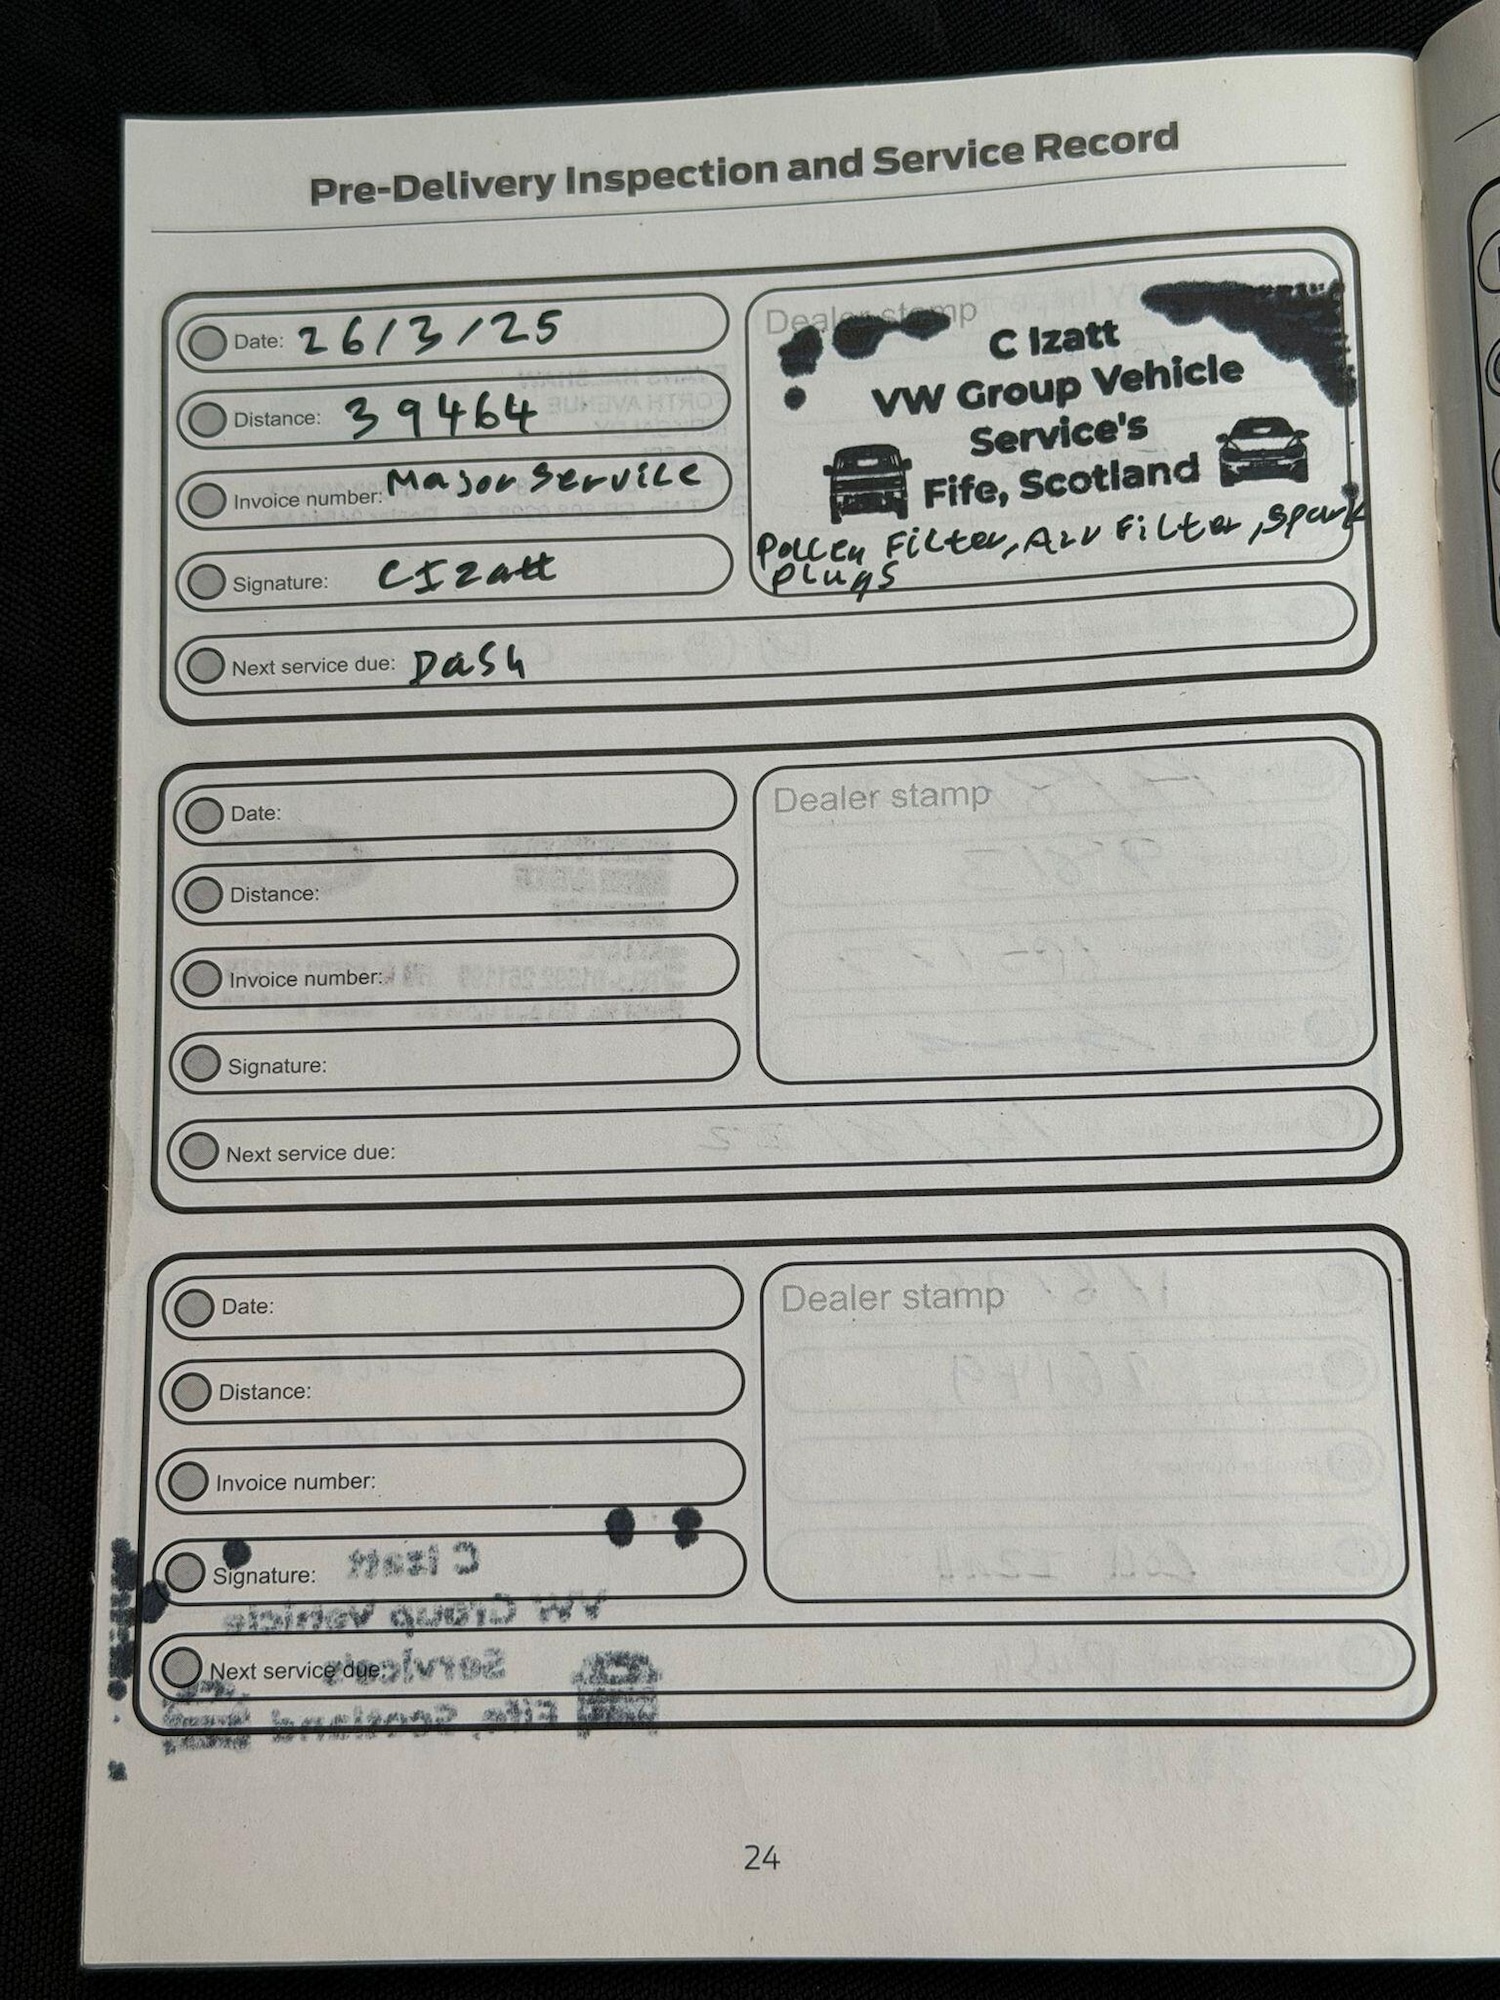 Pre-Delivery Inspection and Service Record
Date: 26/3/25
Distance: 39464
Invoice number: Major Service
Signature: C Izatt
Next service due: Dash
Dealer stamp
C Izatt
VW Group Vehicle
Service's
Fife, Scotland
Pollen Filter, Air Filter, Spark
Plugs
Date:
Distance:
Invoice number:
Signature:
Next service due:
Dealer stamp
Date:
Distance:
Invoice number:
Signature:
Next service due:
Dealer stamp
C Izatt
VW Group Vehicle
Service's
Fife, Scotland
24